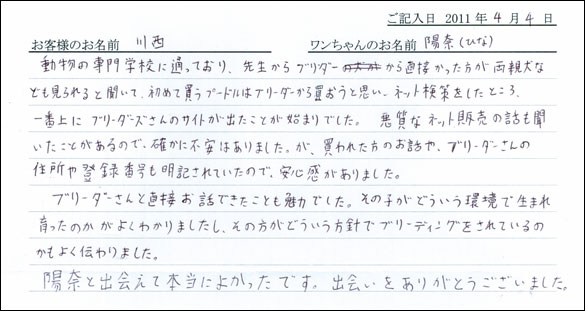 ご記入日 2011年4月4日
お客様のお名前 川西 ワンちゃんのお名前 陽奈(ひな)
動物の専門学校に通っており、先生からブリダーから直接かった方が両親犬な
ども見られると聞いて、初めて買うプードルはブリーダーから買おうと思い、ネット検索をしたところ、
一番上にブリーダーズさんのサイトが出たことが始まりでした。 悪質なネット販売の話も聞
いたことがあるので、確かに不安はありました。が、買われた方のお話や、ブリーダーさんの
住所や登録番号も明記されていたので、安心感がありました。
ブリーダーさんと直接お話できたことも魅力でした。その子がどういう環境で生まれ
育ったのかがよくわかりましたし、その方がどういう方針でブリーディングをされているの
かもよく伝わりました。
陽奈と出会えて本当によかったです。出会いをありがとうございました。